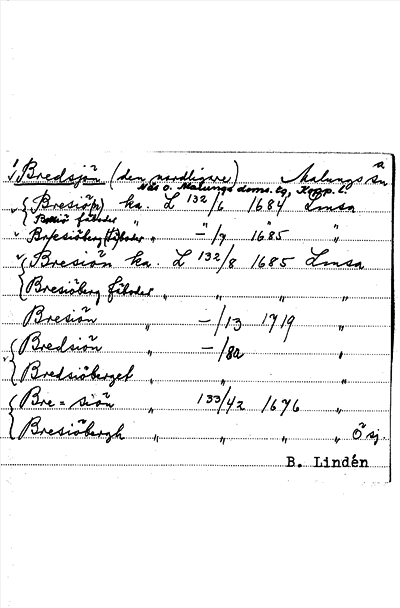 Bredsjön (den nordligare) Malungs sn
Näs o. Malungs doms. lg, Kopp. l.
Bresiö(n) ka. L 132/6 1684 Lmsa
Bresiö fäboder " " "
Bresiöberg fäboder " –/9 1685 "
Bresiön ka. L 132/8 1685 Lmsa
Bresiöberg fäboder " " " "
Bresiön " –/13 1719 "
Bredsiön –/8a "
Bredsiöberget " "
Bre=siön " 133/42 1676 "
Bresiöbergh " " " " Ö sj.
B. Lindén